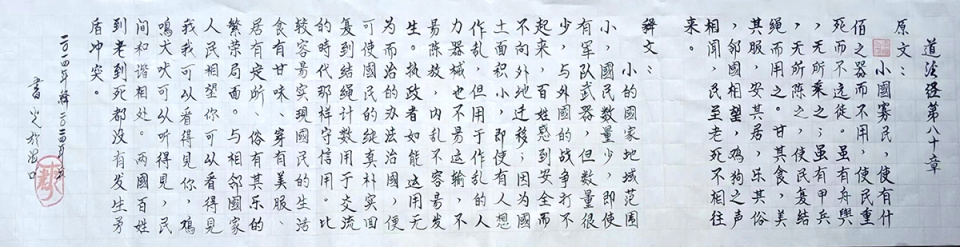 道法經第八十章
原文：
小國寡民，使有什
佰之器而不用，使民重
死而不远徙。虽有舟輿
，无所乘之；虽有甲兵
，无所陈之，使民复结
绳而用之。甘其食，美
其服，安其居，乐其俗
，邻國相望，鸡狗之声
相闻，民至老死不相往
来。
释文：
小的國家地域范围
小，國民数量少，即使
有军队武器，但数量很
少，与外國的战争打不
起来，百姓感到安全而
不向外地迁移；因为國
土面积小，即使有人想
作乱，但用于作乱的人
力器械也不易运输，不
易陈放，内乱不容易发
生。执政者如能这用无
为而治的办法治國，便
可使國民的纯真朴实回
复到结绳计数用于交流
的时代那样守信用。比
较容易实现國民的生活
食有甘味、穿有美服、
居有定所、俗有其乐的
繁荣局面。与相邻國家
人民相望你可以看得見
我我可以看得見你，鸡
鳴犬吠可以听得見，民
间和谐相处。两國百姓
到老到死都没有发生矛
盾冲突。
二〇一四年释二〇二四年